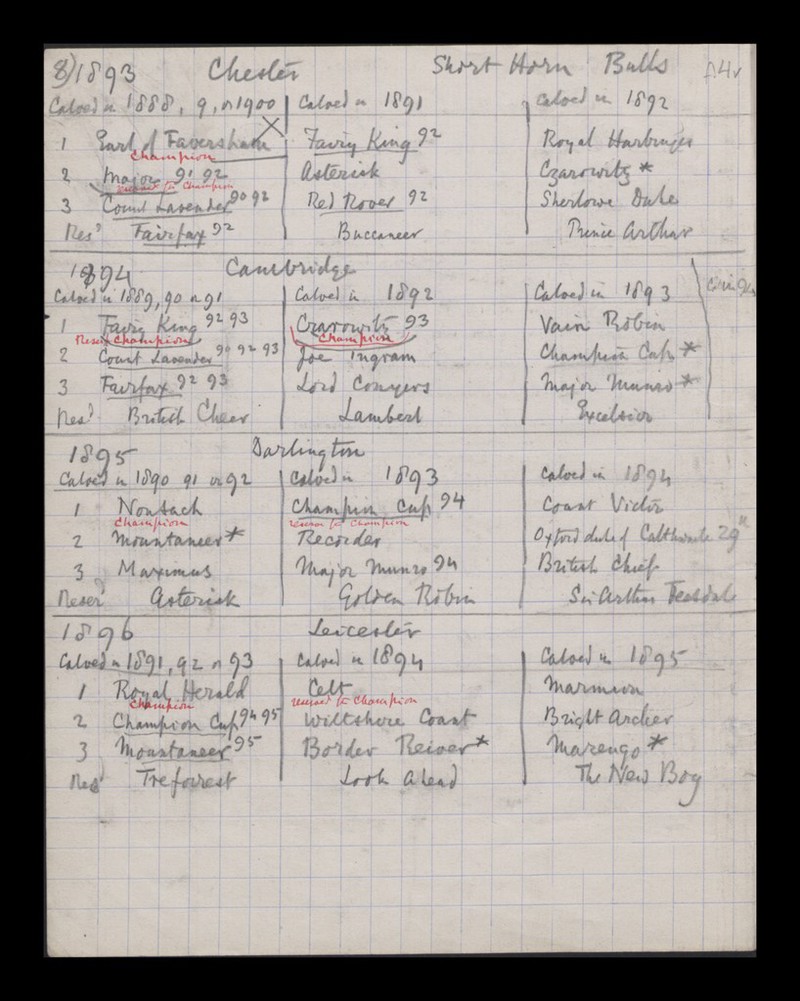 8) 1893 Chester Short Horn Bulls
Calved in 1888, 9, or 1900 Calved in 1891 Calved in 1892
1 Earl of Faversham Fairy King 92 Royal Harbinger
Champion
2 Major 91 92 Asterisk Czarowitz *
reserve for Champion
3 Count Lavender 90 92 Red Rover 92 Sherlowe Duke
Res' Fairfax 92 Buccaneer Prince Arthur
1894 Cambridge
Calved in 1889, 90 or 91 Calved in 1892 Calved in 1893
1 Fairy King 92 93 Czarowitz 93 Vain Robin
Reserve Champion Champion
2 Count Lavender 90 92 93 Joe Ingram Champion Cup *
3 Fairfax 92 93 Lord Conyers Major Munro *
Res' British Cheer Lambert Excelsior
1895 Darlington
Calved in 1890 91 or 92 Calved in 1893 Calved in 1894
1 Nonsuch Champion Cup 94 Count Victor
Champion reserve for Champion
2 Mountaneer * Recorder Oxford duke of Calthwaite 29"
3 Maximus Major Munro 94 British Chief
Reser' Asterisk Golden Robin Sir Arthur Teesdale
1896 Leicester
Calved in 1891, 92 or 93 Calved in 1894 Calved in 1895
1 Royal Herald Celt Marmion
Champion reserve for Champion
2 Champion Cup 94 95 Wiltshire Count Bright Archer
3 Mountaneer 95 Border Reiver * Marengo *
Res' Treforest Look Ahead The New Boy